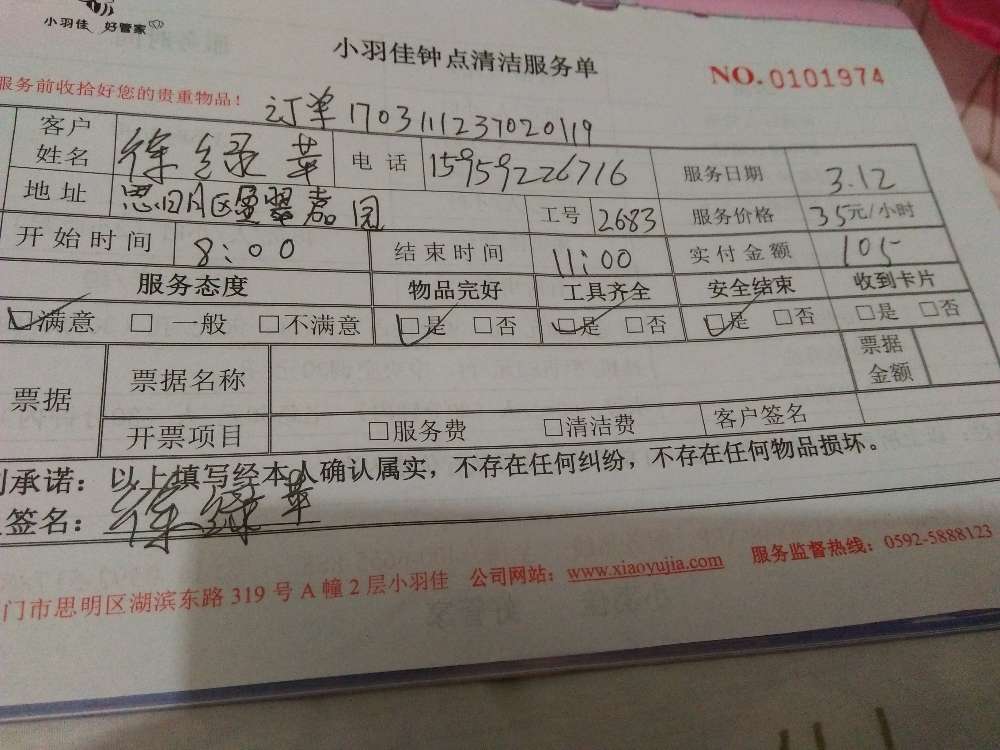 小羽佳 好管家
小羽佳钟点清洁服务单
NO. 0101974
服务前收拾好您的贵重物品！
订单1703111237020119
客户姓名 徐绿苹 电话 15959226716 服务日期 3.12
地址 思明区 翠嘉园 工号 2683 服务价格 35元/小时
开始时间 8:00 结束时间 11:00 实付金额 105
服务态度 物品完好 工具齐全 安全结束 收到卡片
☑满意 □一般 □不满意 ☑是 □否 ☑是 □否 ☑是 □否 □是 □否
票据 票据名称 票据金额
开票项目 □服务费 □清洁费 客户签名
承诺：以上填写经本人确认属实，不存在任何纠纷，不存在任何物品损坏。
签名：徐绿苹
门市思明区湖滨东路 319 号 A 幢 2 层小羽佳 公司网站：www.xiaoyujia.com 服务监督热线：0592-5888123